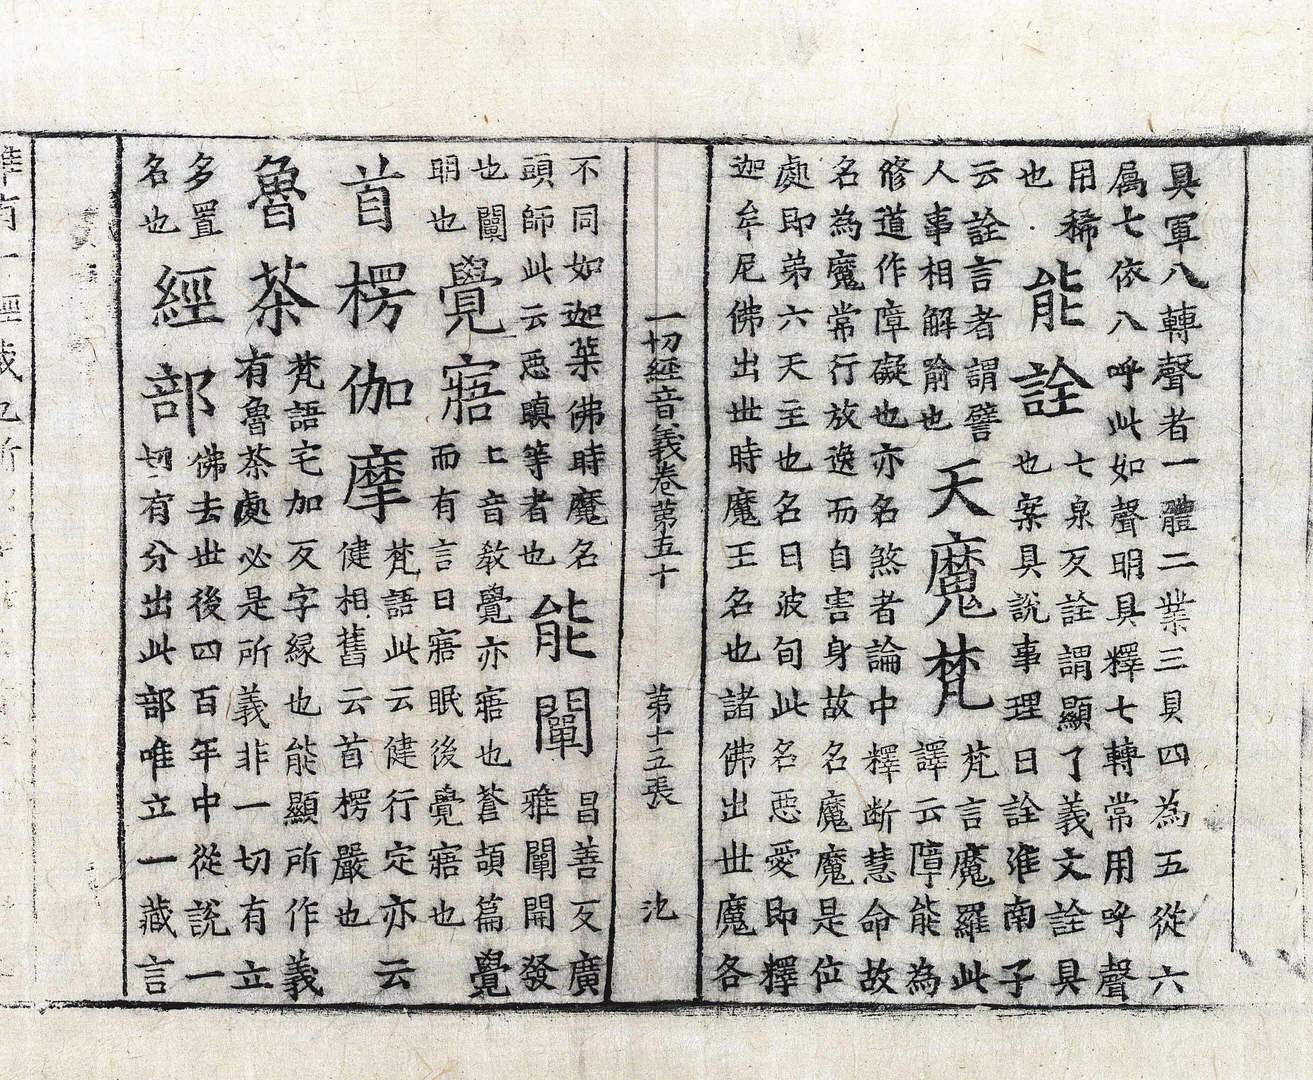 具軍八轉聲者一體二業三具四為五從六
属七依八呼此如聲明具釋七轉常用呼聲
用稀
也
能詮
七泉反詮謂顯了義文詮具
也案具說事理曰詮淮南子
云詮言者謂譬
人事相解喻也
天魔梵
梵言魔羅此
譯云障能為
修道作障礙也亦名煞者論中釋断慧命故
名為魔常行放逸而自害身故名魔魔是位
處即弟六天主也名曰波旬此名惡愛即釋
迦牟尼佛出世時魔王名也諸佛出世魔各
一切經音義卷苐五十 苐十五張 池
不同如迦葉佛時魔名
頭師此云惡瞋等者也
能闡
昌善反廣
雅闡開發
也闡
明也
覺寤
上音教覺亦寤也蒼頡篇覺
而有言曰寤眠後覺寤也
首楞伽摩
梵語此云健行定亦云
健相舊云首楞嚴也
魯荼
梵語宅加反字縁也能顯所作義
有魯荼處必是所義非一切有立
多置
名也
經部
佛去世後四百年中從說一
切有分出此部唯立一藏言